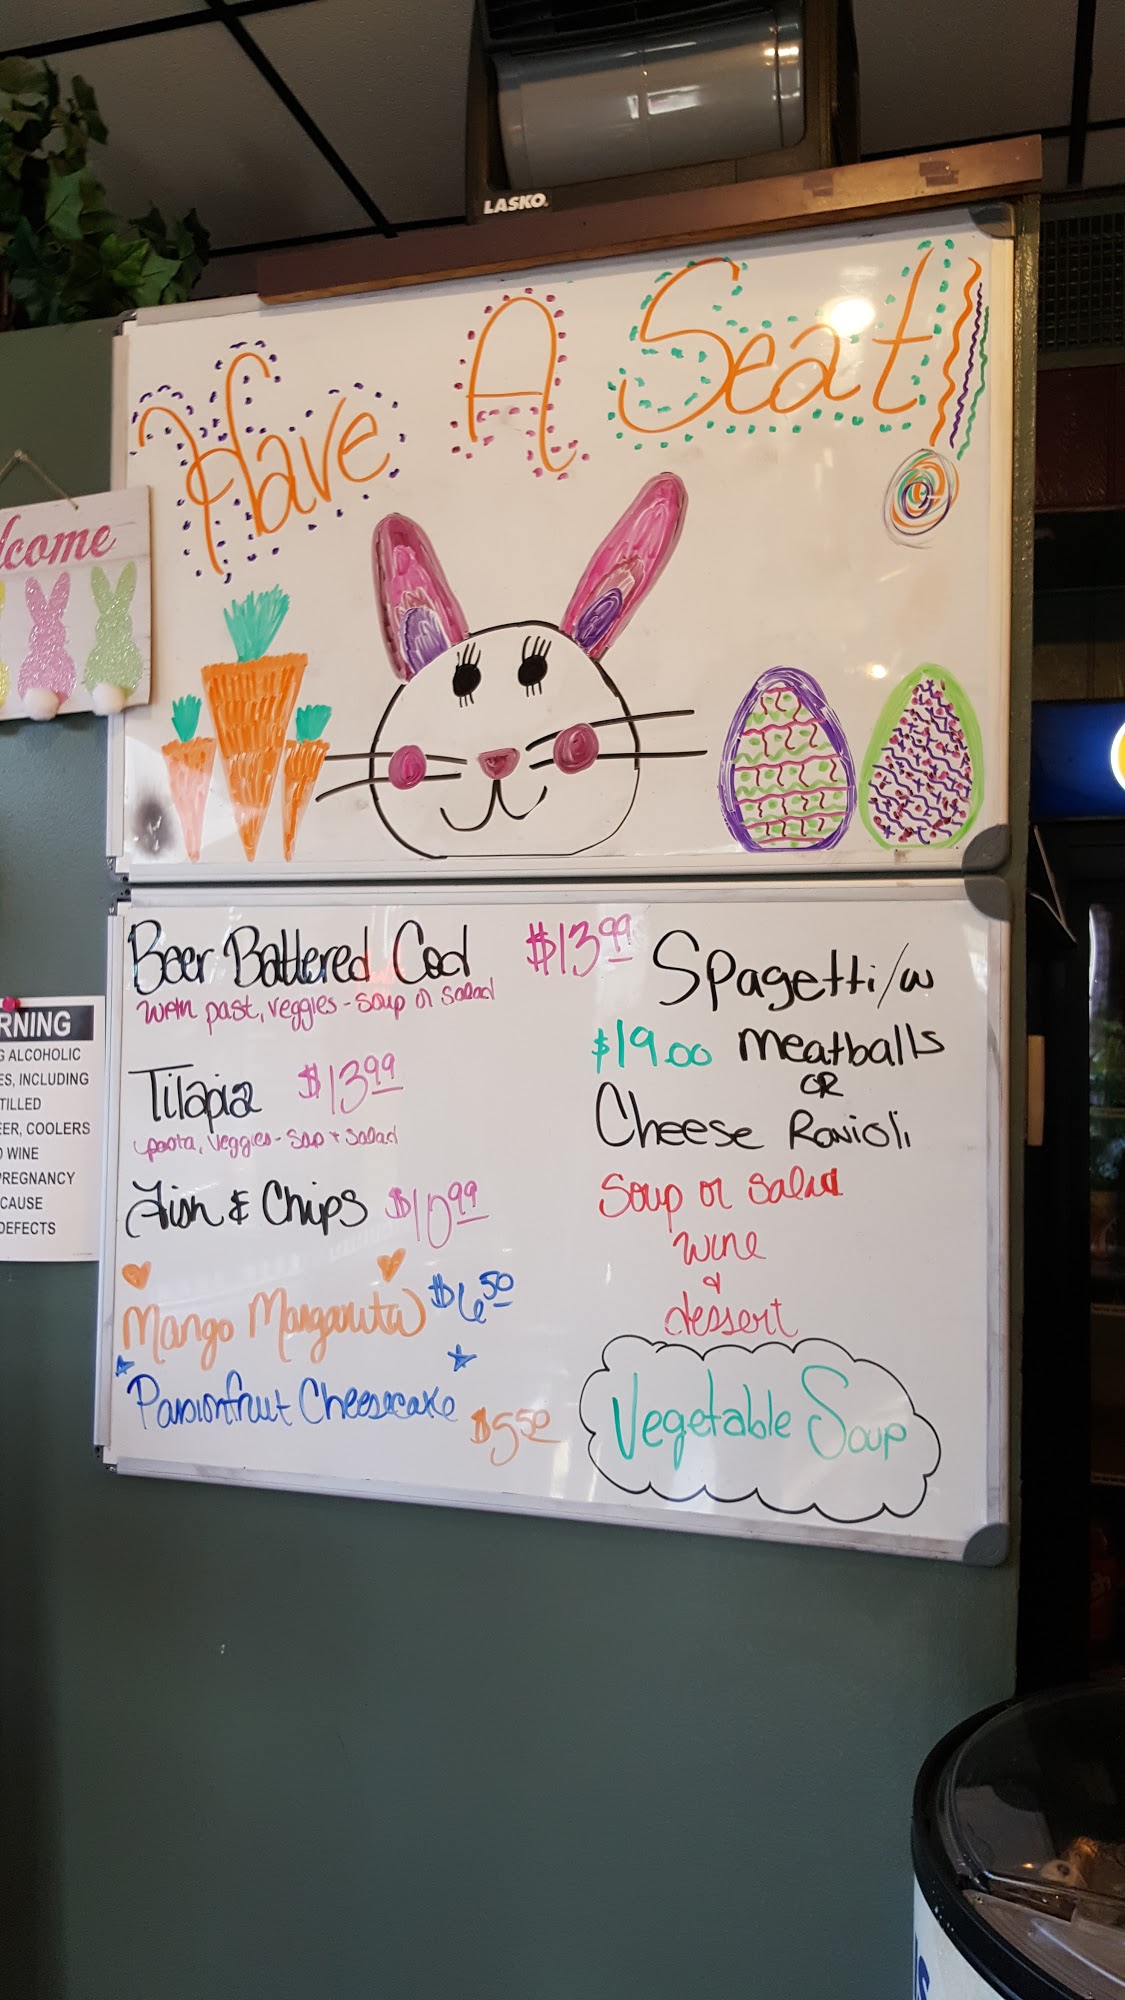 LASKO
Have A Seat!
lcome
Beer Battered Cod $13.99
with past, veggies - soup or salad
Tilapia $13.99
pasta, veggies - soup + salad
Fish & Chips $10.99
Mango Margarita $6.50
Passionfruit Cheesecake $5.50
Spagetti/w
$19.00 meatballs
OR
Cheese Ravioli
Soup or salad
wine
&
dessert
Vegetable Soup
RNING
G ALCOHOLIC
ES, INCLUDING
TILLED
EER, COOLERS
D WINE
PREGNANCY
CAUSE
DEFECTS